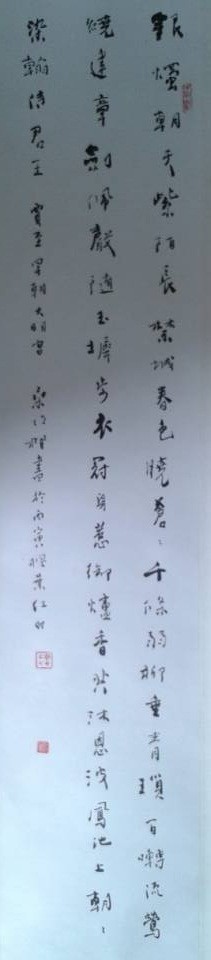 銀燭朝天紫陌長禁城春色曉蒼〻千條弱柳垂青瑣百囀流鶯
繞建章劍佩聲隨玉墀步衣冠身惹御爐香共沐恩波鳳池上朝〻
染翰侍君王 賈至早朝大明宮 書於丙寅楓葉紅時